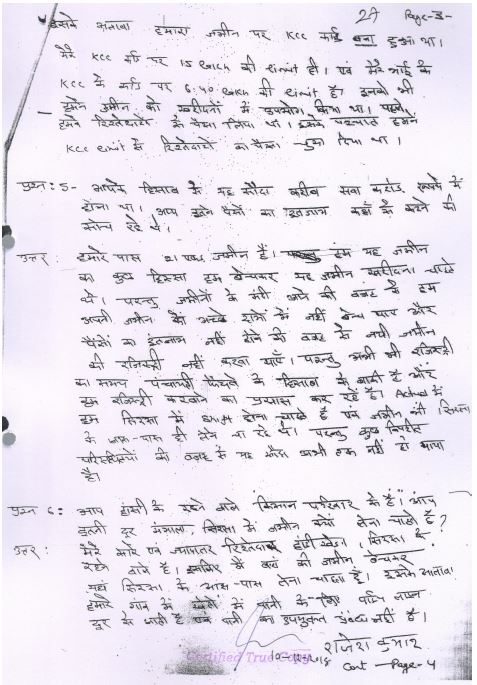 27 Page-3-
इसके अलावा हमारा जमीन पर KCC कार्ड बना हुआ था।
मेरे KCC कार्ड पर 15 Lakh की limit है। एवं मेरे भाई के
KCC के कार्ड पर 6.40 Lakh की limit है। इनको भी
हमने जमीन को खरीदने में उपयोग किया था। पहले
हमने रिश्तेदारों से पैसा लिया था। इसके पश्चात हमने
KCC limit से रिश्तेदारों का पैसा चुका दिया था।
प्रश्न: 5- आपके हिसाब से यह सौदा करीब सवा करोड़ रुपये में
होना था। आप इतने पैसों का इंतजाम कहाँ से करने की
सोच रहे थे।
उत्तर: हमारे पास 21 एकड़ जमीन है। हम यह जमीन
का कुछ हिस्सा हम बेचकर यह जमीन खरीदना चाहते
थे। परन्तु जमीनों के मंदी आने की वजह से हम
अपनी जमीन को अच्छे दामों में नहीं बेच पाए और
पैसों का इंतजाम नहीं होने की वजह से नयी जमीन
की रजिस्ट्री नहीं करवा पाएँ। परन्तु अभी भी रजिस्ट्री
का समय पंचायती फैसले के हिसाब से बाकी है और
हम रजिस्ट्री करवाने का प्रयास कर रहे हैं। Actual में
हम सिरसा में shift होना चाहते हैं एवं जमीन भी सिरसा
के आस-पास ही लेने जा रहे थे। परन्तु कुछ विपरीत
परिस्थितियों की वजह से यह सौदा अभी तक नहीं हो पाया
है।
प्रश्न 6: आप हांसी के रहने वाले किसान परिवार से हैं। आप
इतनी दूर मंगाला, सिरसा में जमीन क्यों लेना चाहते हैं?
उत्तर: मेरे सारे एवं ज्यादातर रिश्तेदार, सिरसा के
रहने वाले हैं। इसलिए मैं वहां की जमीन बेचकर
यहां सिरसा के आस-पास लेना चाहता हूँ। इसके अलावा
हमारे गांव के खेतों में पानी के लिए पाईप लाइन
दूर से आती है एवं पानी का उपयुक्त साधन नहीं है।
राजेश कुमार
Certified True Copy
Cont - Page-4